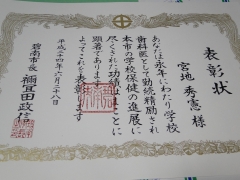 表彰状
宮地秀憲様
あなたは永年にわたり学校
歯科医として勤続精励され
本市の学校保健の進展に
尽くされた功績はまことに
顕著であります
よってこれを表彰します
平成二十四年六月二十八日
碧南市長 禰冝田政信